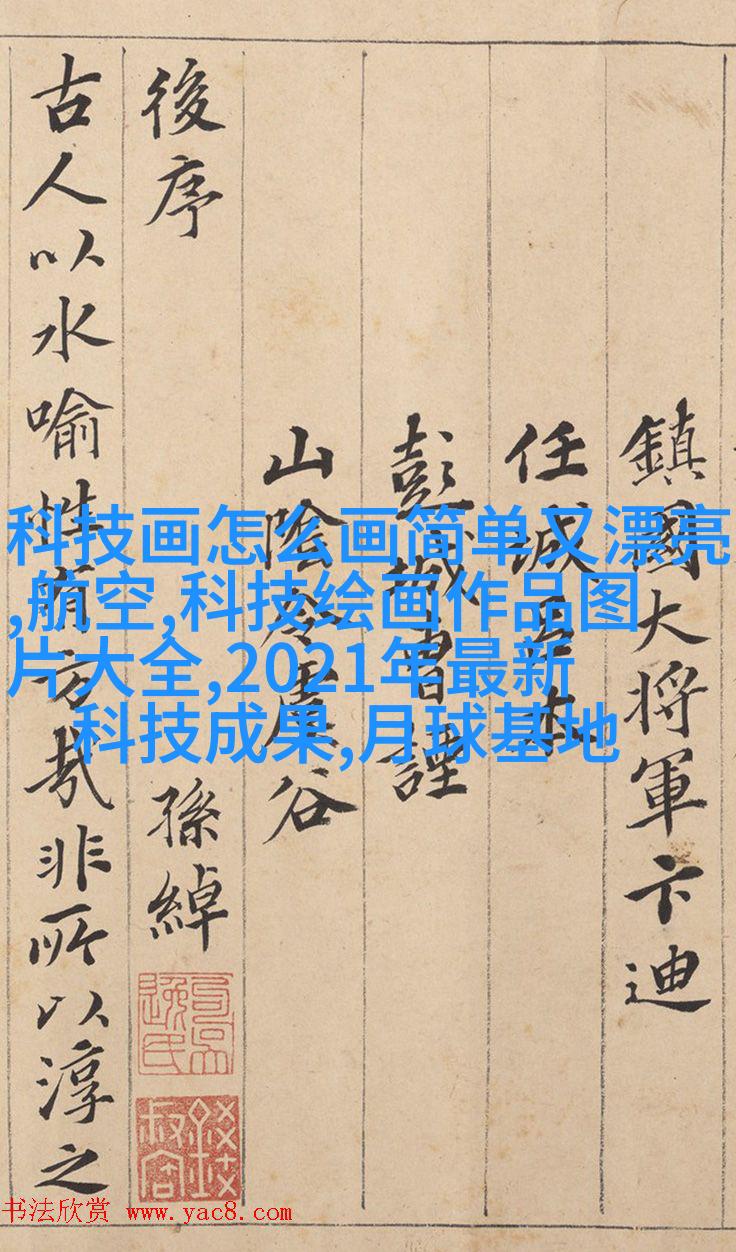 鎮國大將軍卞迪
任城呂本
彭城曹諲
山陰令虞谷
後序 孫綽
古人以水喻性有旨哉非所以淳之
科技画怎么画简单又漂亮
,航空,科技绘画作品图
片大全,2021年最新
科技成果,月球基地
书法欣赏 www.yac8.com